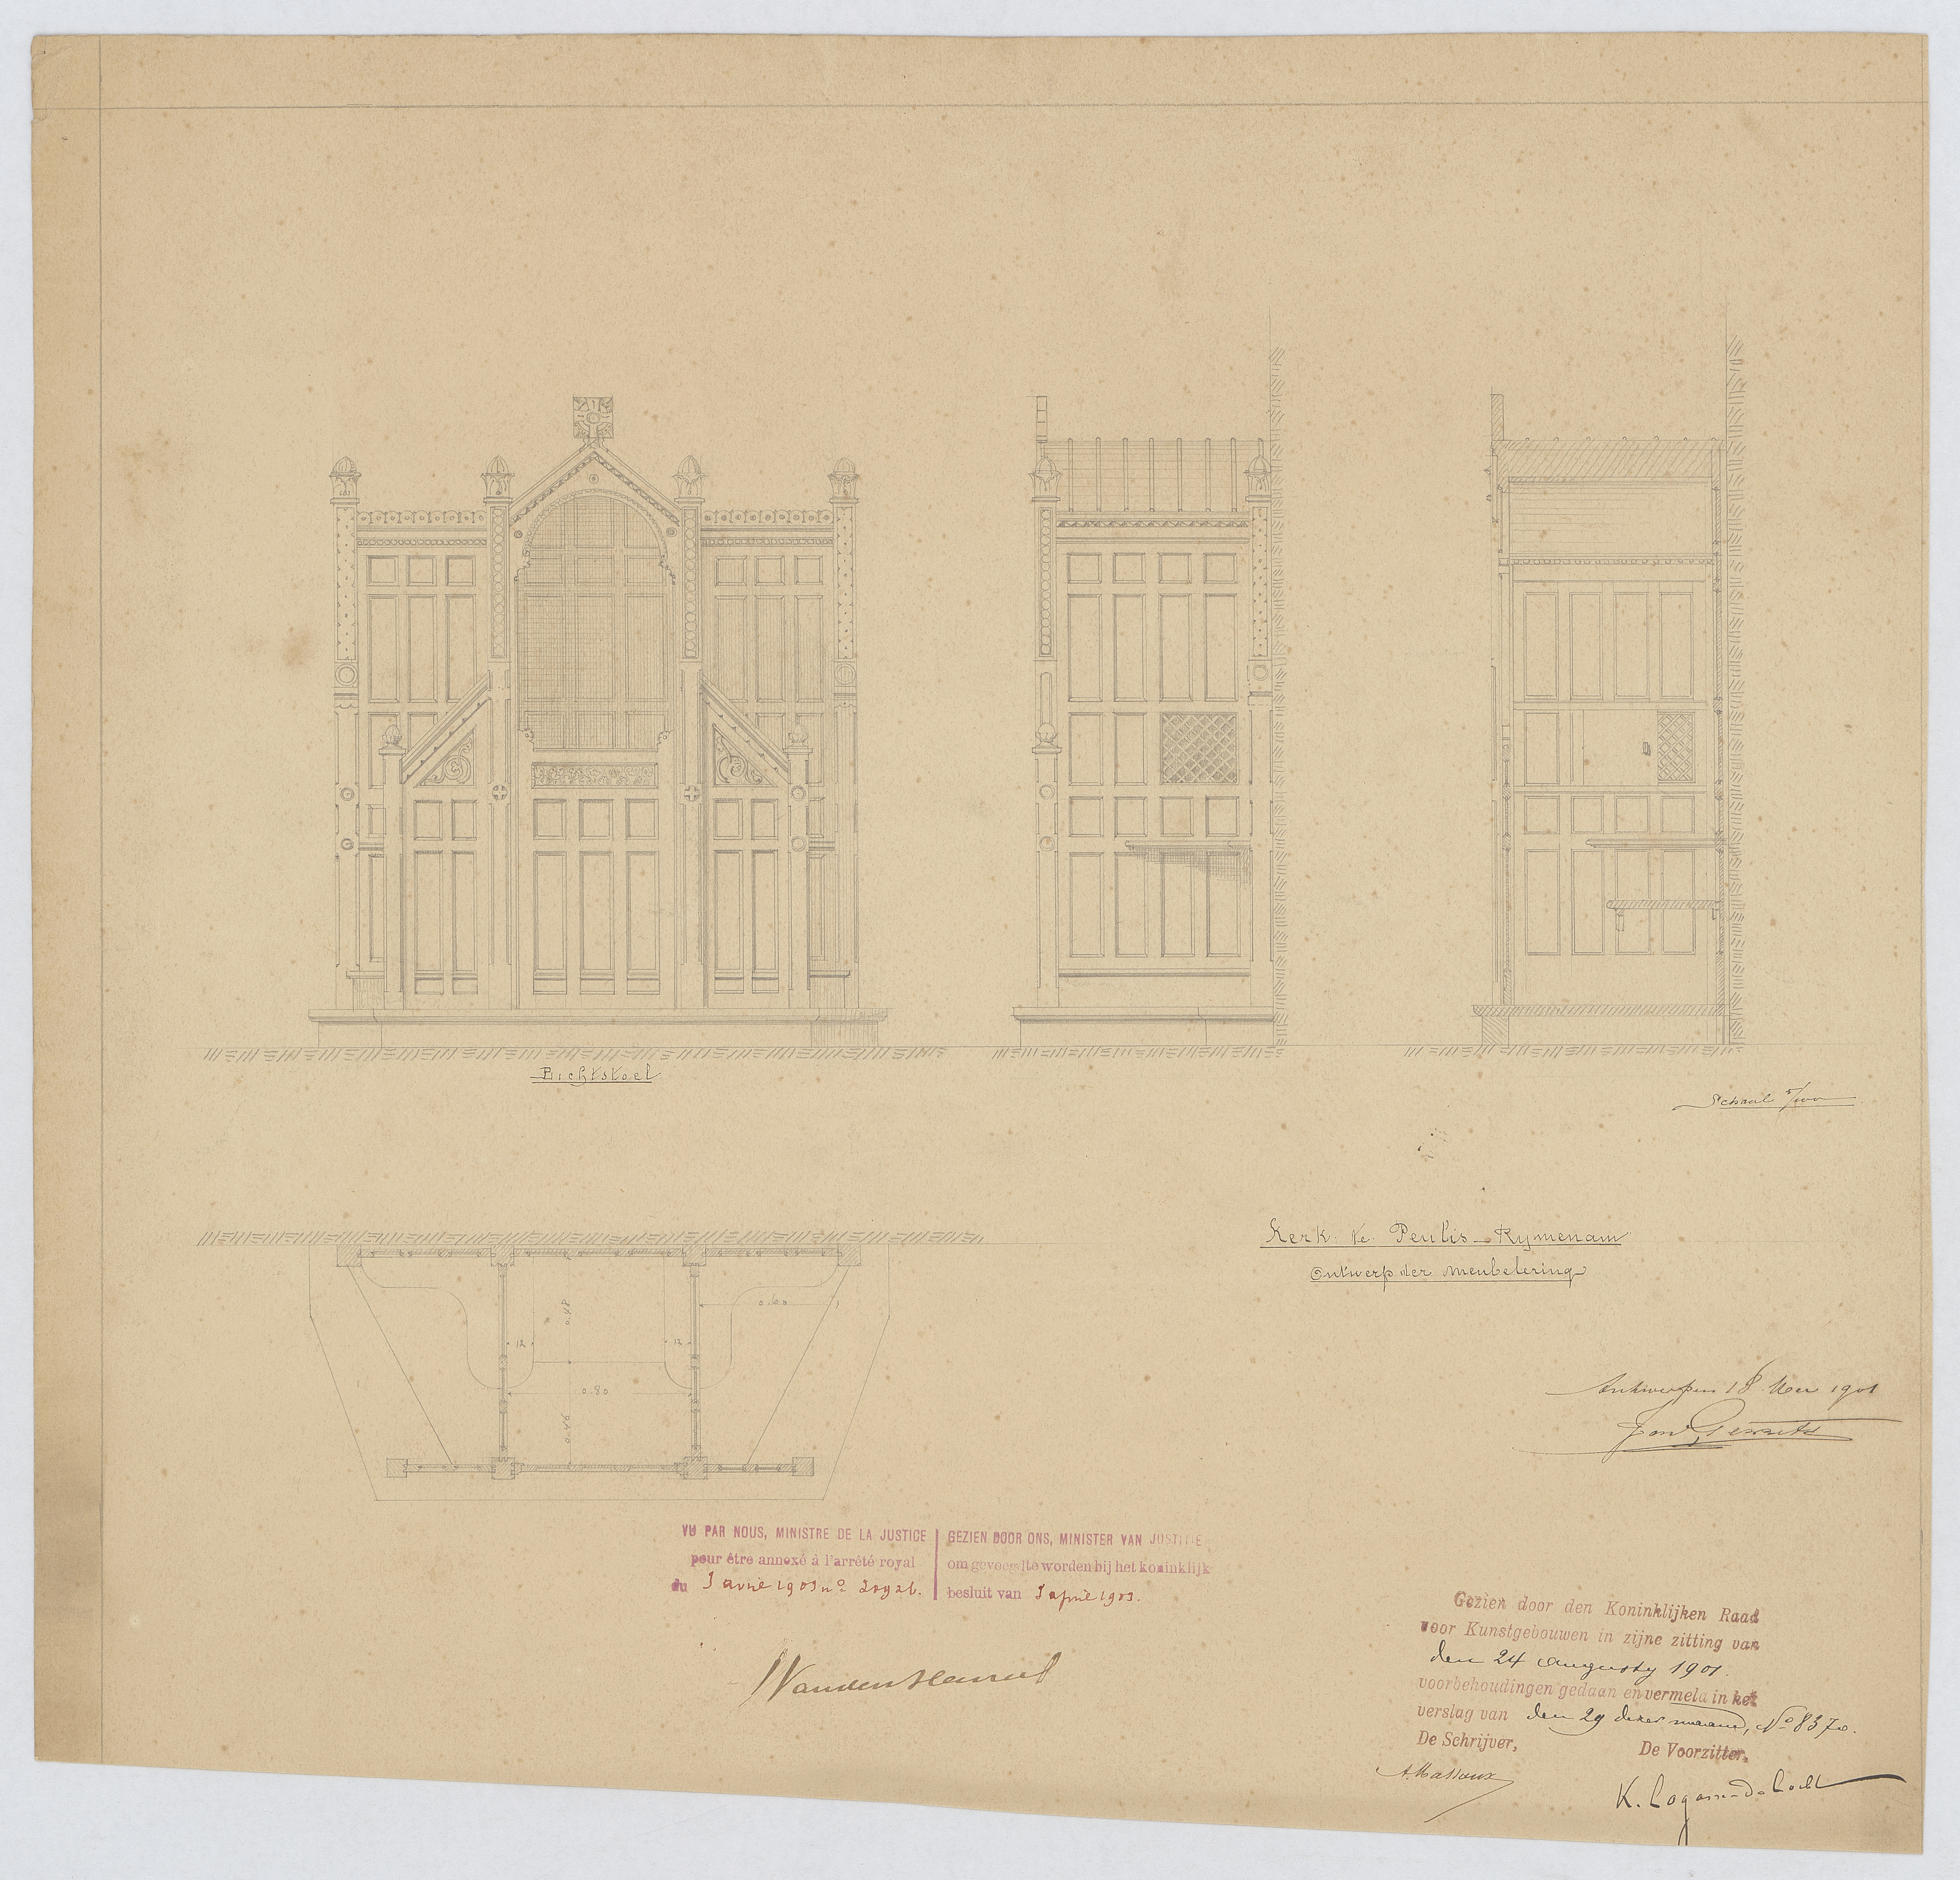 Bichtstoel
Schaal 5/100
Kerk te Peulis-Rymenam
Ontwerp der meubelering
0.48
0.60
12
12
0.80
0.46
Antwerpen 18 Mei 1901
VU PAR NOUS, MINISTRE DE LA JUSTICE
pour être annexé à l'arrêté royal
du 3 avril 1903 nº 20926.
GEZIEN DOOR ONS, MINISTER VAN JUSTITIE
om gevoegd te worden bij het koninklijk
besluit van 3 april 1903.
Gezien door den Koninklijken Raad
voor Kunstgebouwen in zijne zitting van
den 24 augusty 1901.
voorbehoudingen gedaan en vermeld in het
verslag van den 29 dezer maand, Nº 8370.
De Schrijver,
De Voorzitter,
A. Massaux
K. Lagasse de Locht